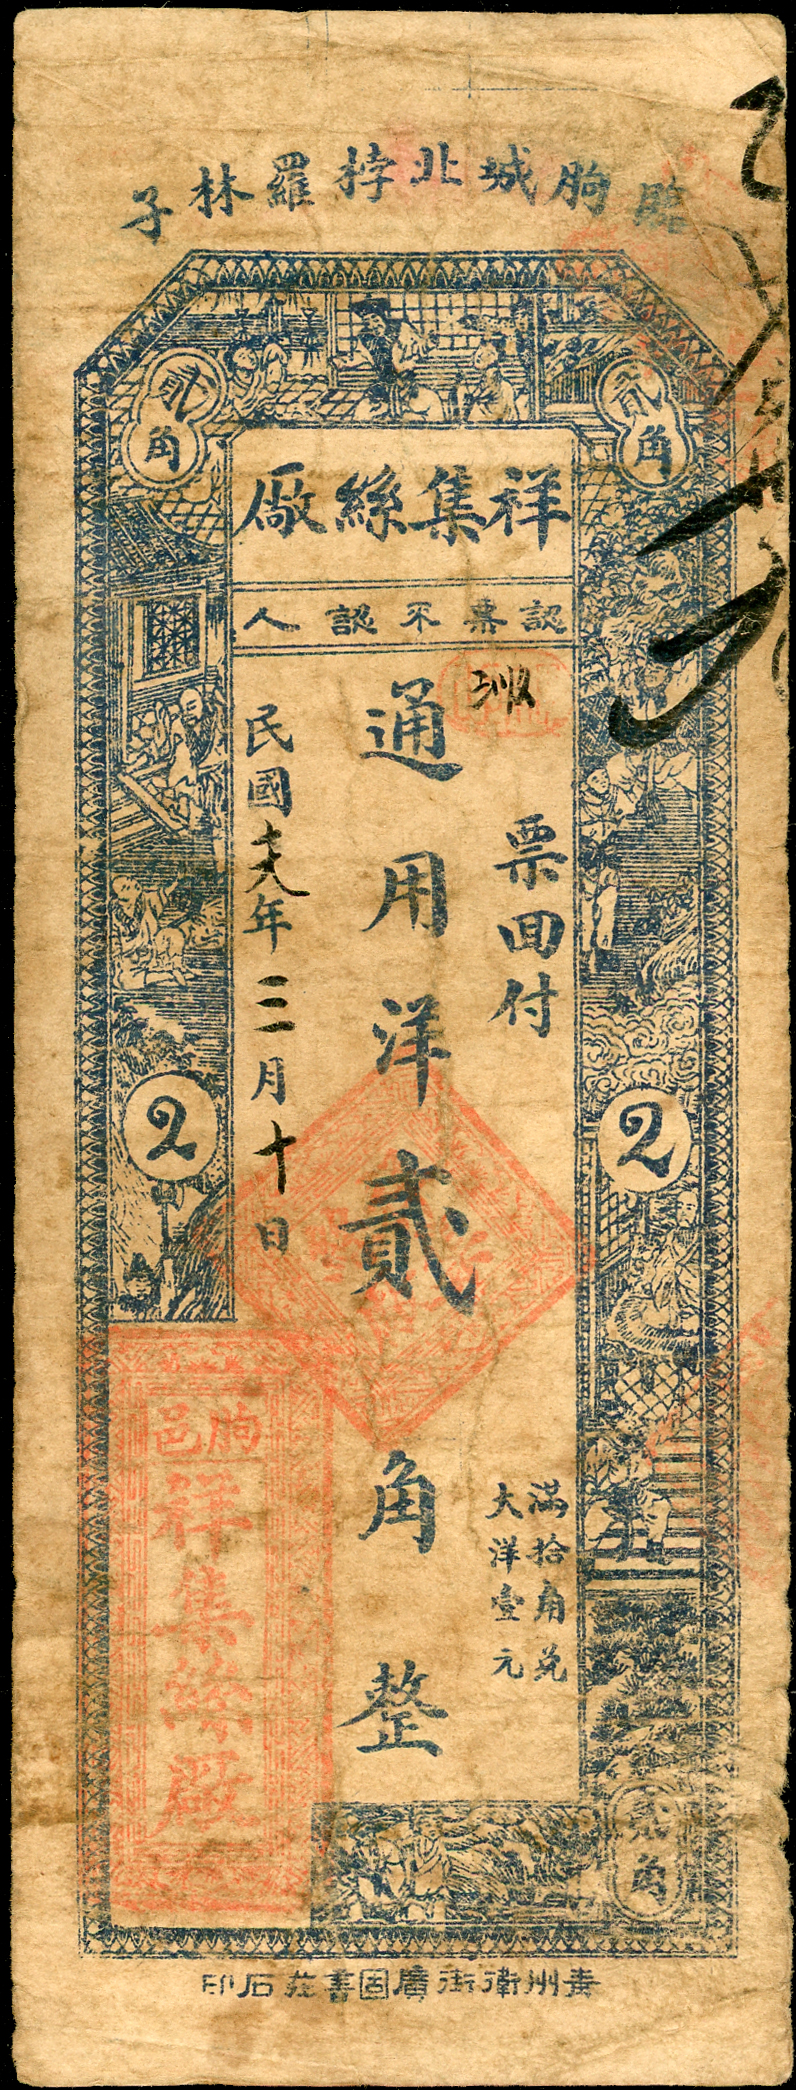 臨朐城北桲羅林子
貳角
貳角
祥集絲廠
認票不認人
票回付
通用洋貳角整
滿拾角兌
大洋壹元
民國十八年三月十日
2
2
朐邑
祥集絲廠
貳角
青州衛街廣固書莊石印